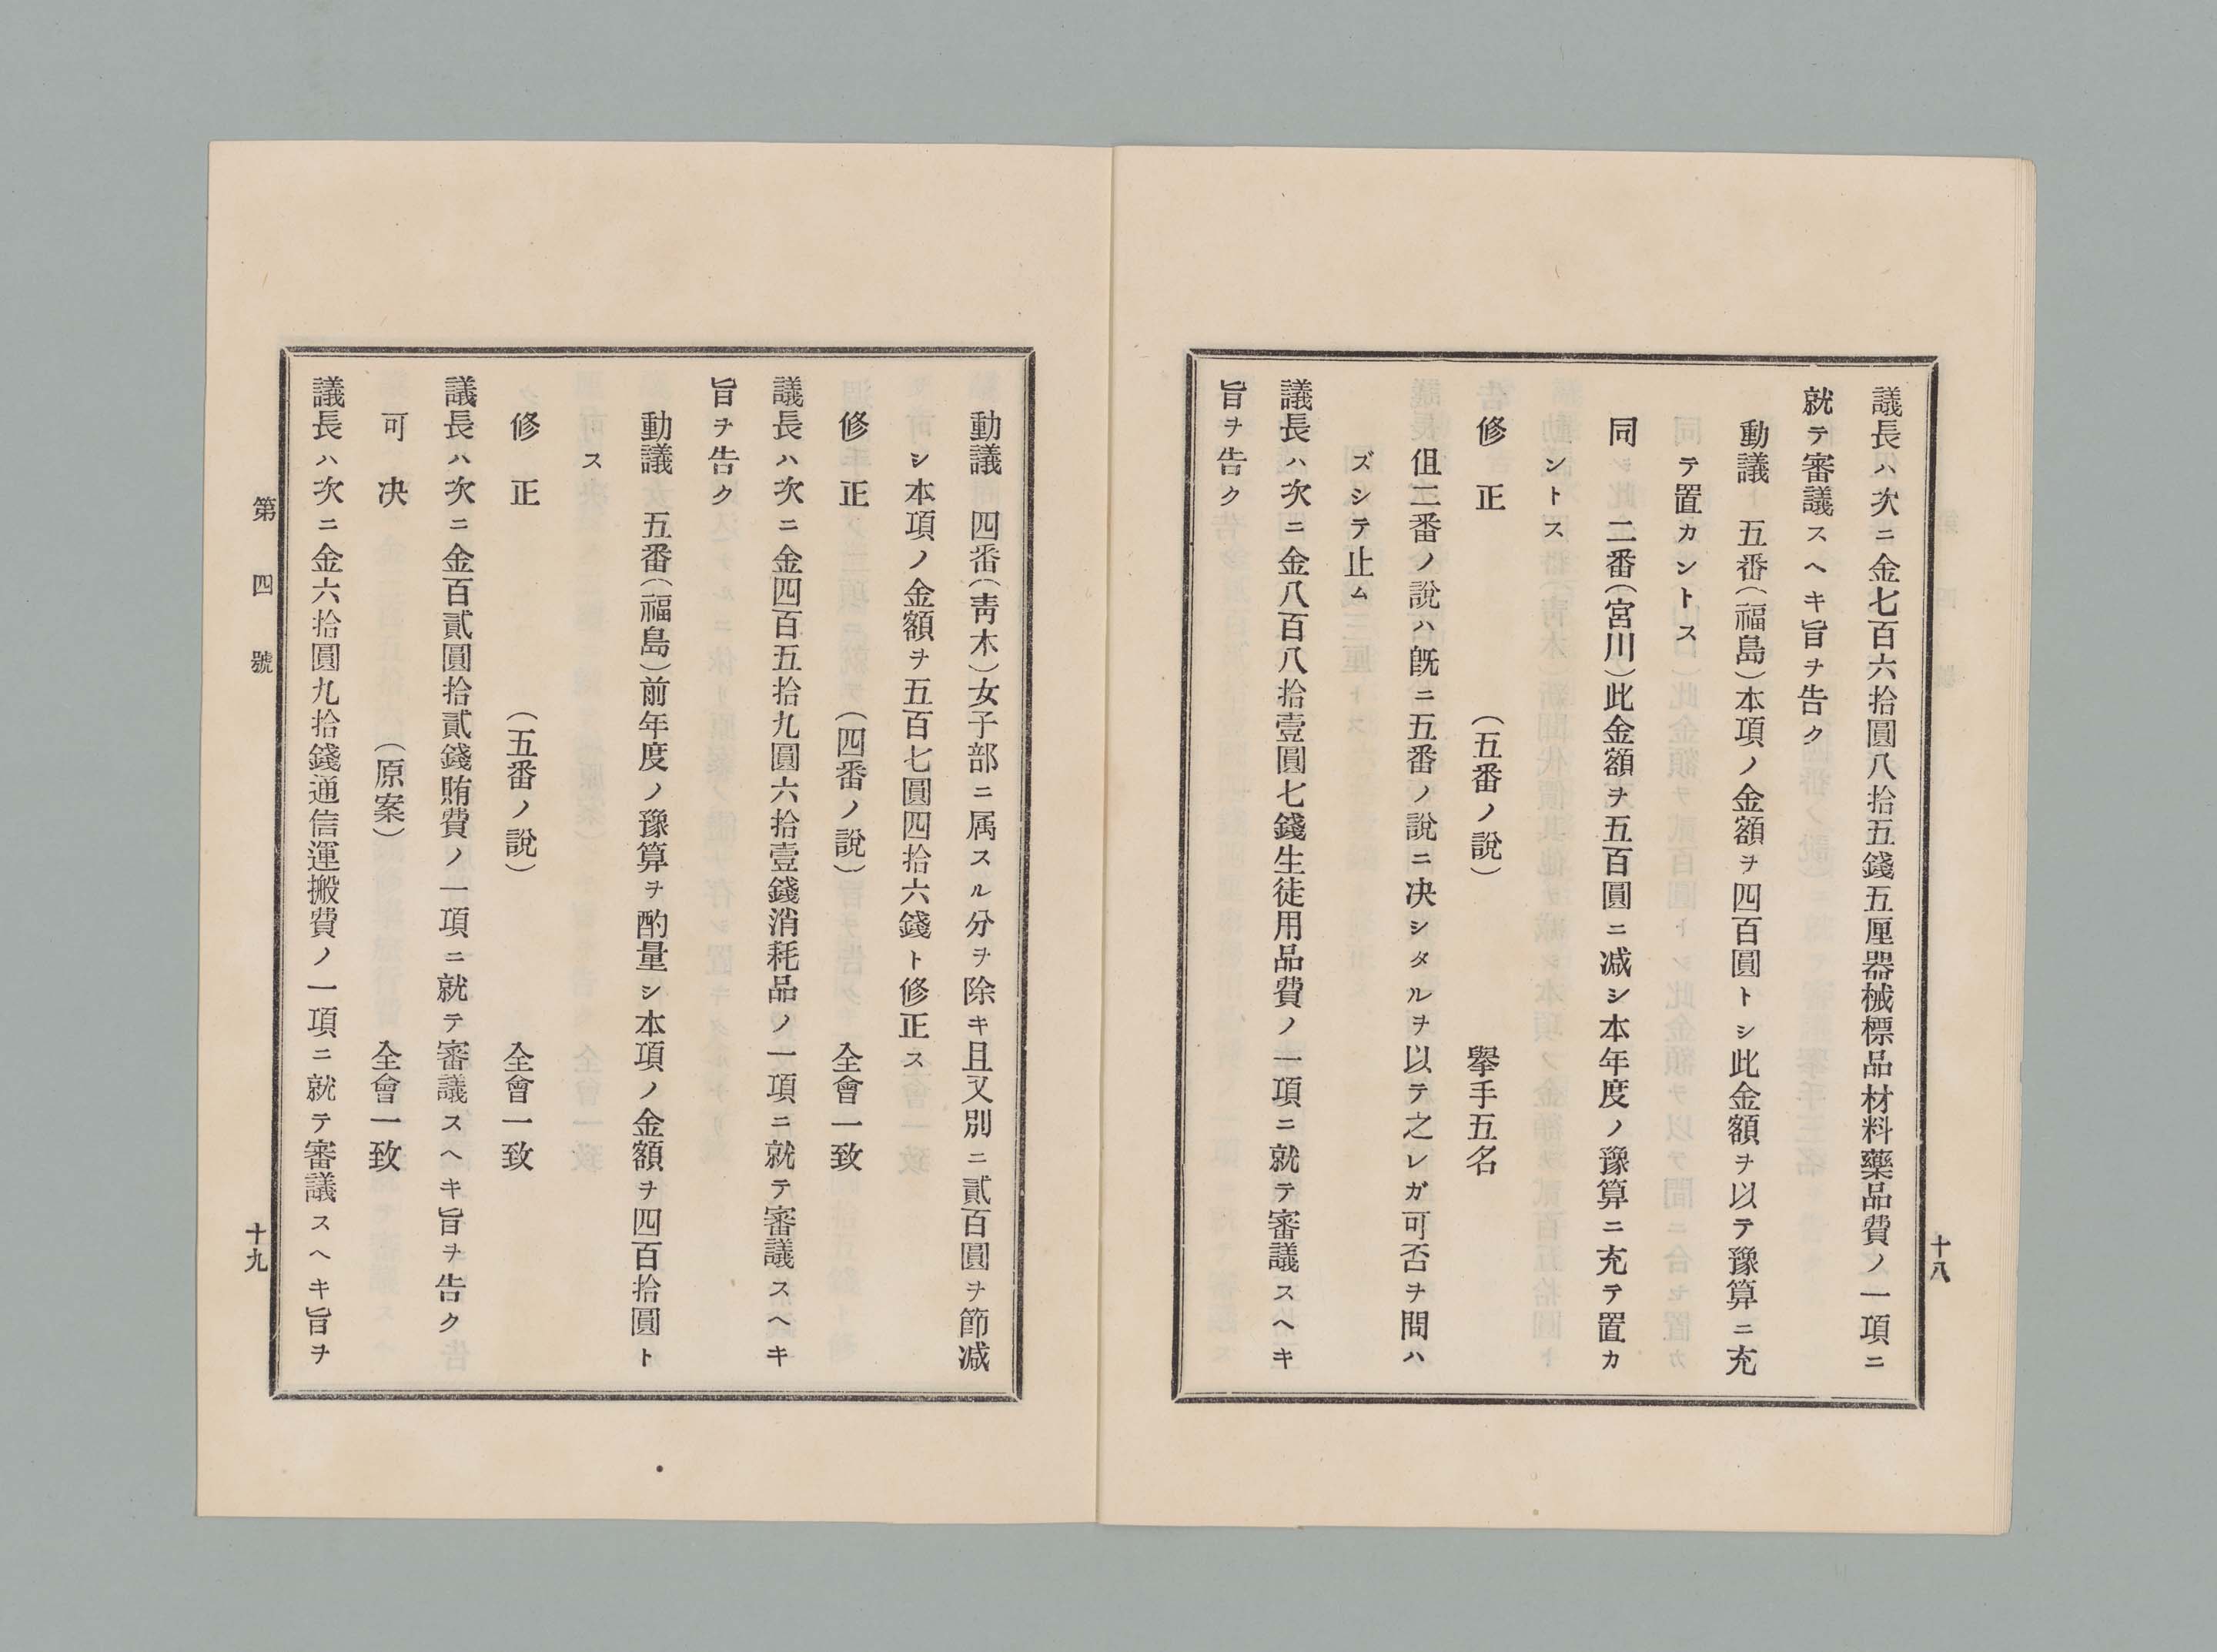 十八
議長ハ次ニ金七百六拾圓八拾五錢五厘器械標品材料藥品費ノ一項ニ
就テ審議スヘキ旨ヲ告ク
動議 五番(福島)本項ノ金額ヲ四百圓トシ此金額ヲ以テ豫算ニ充
テ置カントス
同 二番(宮川)此金額ヲ五百圓ニ減シ本年度ノ豫算ニ充テ置カ
ントス
修正 (五番ノ說) 擧手五名
伹二番ノ說ハ既ニ五番ノ說ニ决シタルヲ以テ之レガ可否ヲ問ハ
ズシテ止ム
議長ハ次ニ金八百八拾壹圓七錢生徒用品費ノ一項ニ就テ審議スヘキ
旨ヲ告ク
動議 四番(靑木)女子部ニ属スル分ヲ除キ且又別ニ貳百圓ヲ節减
シ本項ノ金額ヲ五百七圓四拾六錢ト修正ス
修正 (四番ノ說) 全會一致
議長ハ次ニ金四百五拾九圓六拾壹錢消耗品ノ一項ニ就テ審議スヘキ
旨ヲ告ク
動議 五番(福島)前年度ノ豫算ヲ酌量シ本項ノ金額ヲ四百拾圓ト
ス
修正 (五番ノ說) 全會一致
議長ハ次ニ金百貳圓拾貳錢賄費ノ一項ニ就テ審議スヘキ旨ヲ告ク
可决 (原案) 全會一致
議長ハ次ニ金六拾圓九拾錢通信運搬費ノ一項ニ就テ審議スヘキ旨ヲ
第四號 十九